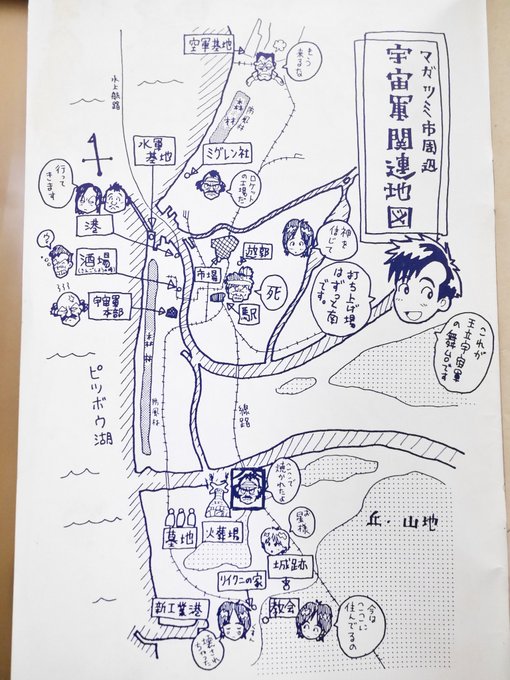 マガツミ市周辺
宇宙軍関連地図
これが
王立宇宙軍
の舞台です
空軍基地
もう
来るな
水上航路
森・林
防風林
水軍
基地
ミグレン社
ロケット
の工場だ
行って
きます
港
酒場
ウ?
宇宙軍
本部
市場
遊郭
神を
信じて
死
駅
打ち上げ場
はずっと南
です。
森・林
防風林
線路
ピッボウ湖
ここで
焼かれたよ
墓地
火葬場
お星様
城跡
丘・山地
リイクニの家
宮
教会
今は
ここに
住んでるの
新工業港
壊され
ちゃった